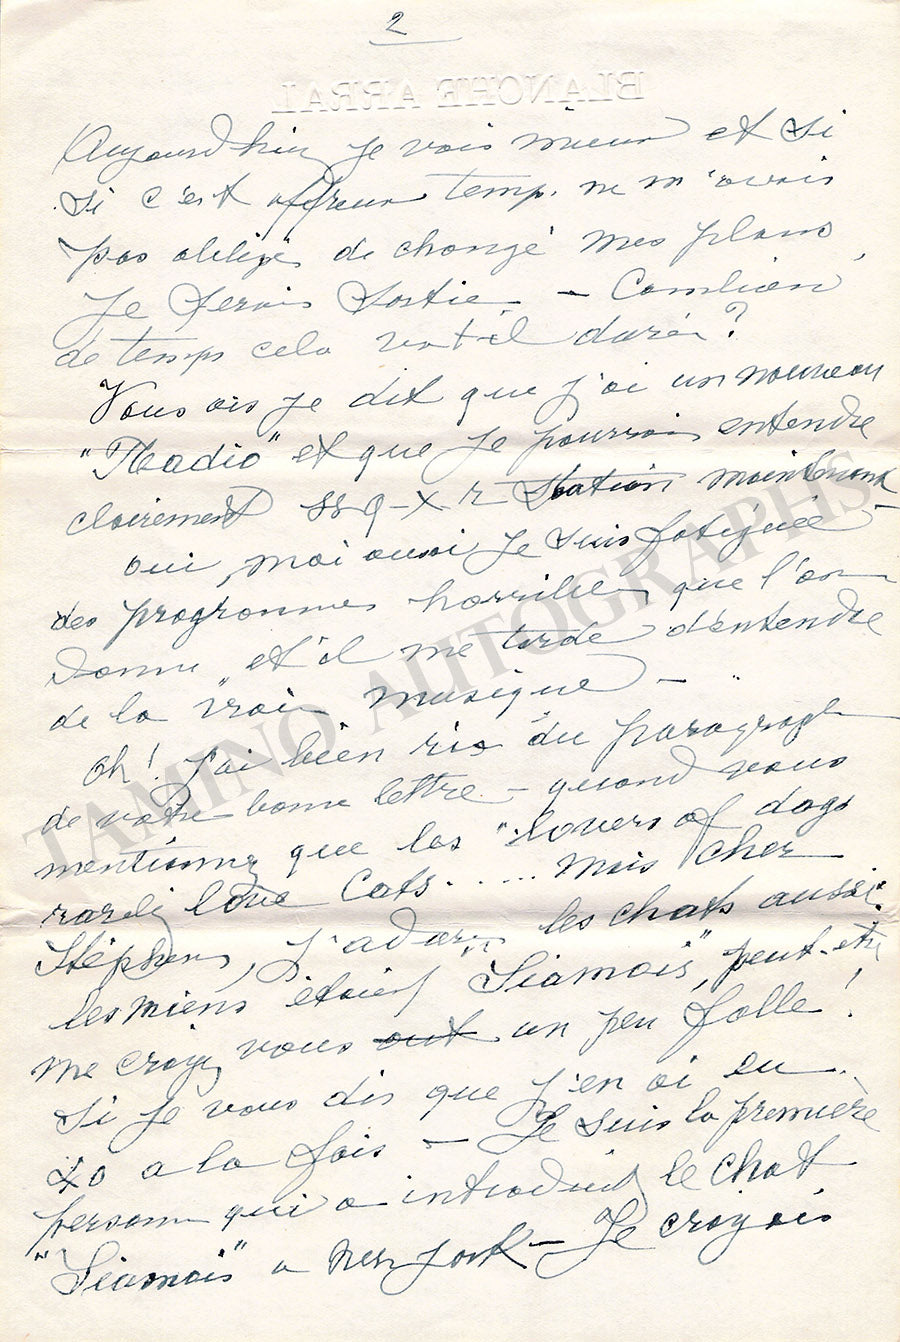 2
BLANCHE ARRAL
Aujourd'hui je vais mieux et si
si c'est affreux temp. ne m'avais
pas obligés de changé mes plans,
Je serais sortie – Combien
de temps cela vat-il durér?
Vous ais je dit que j'ai un nouveau
"Radio" et que je pourrais entendre
clairement Q-X-R Station maintenant
oui, moi aussi je suis fatiguée –
des programmes horribles que l'on
donne et'il me tarde d'entendre
de la "vrai musique" –
Oh! j'ai bien ris du paragraph
de votre bonne lettre – quand vous
mentionnez que les "lovers of dogs
rarely love Cats..... mais cher
Stéphen, j'adore les chats aussi.
les miens étaient "Siamois", peut-etre
me croyez vous out un peu folle!
Si je vous dis que j'en ai eu..
40 a la fois – Je suis la première
personne qui a introduit le chat
"Siamois" a New York – Je croyais
TAMINO AUTOGRAPHS